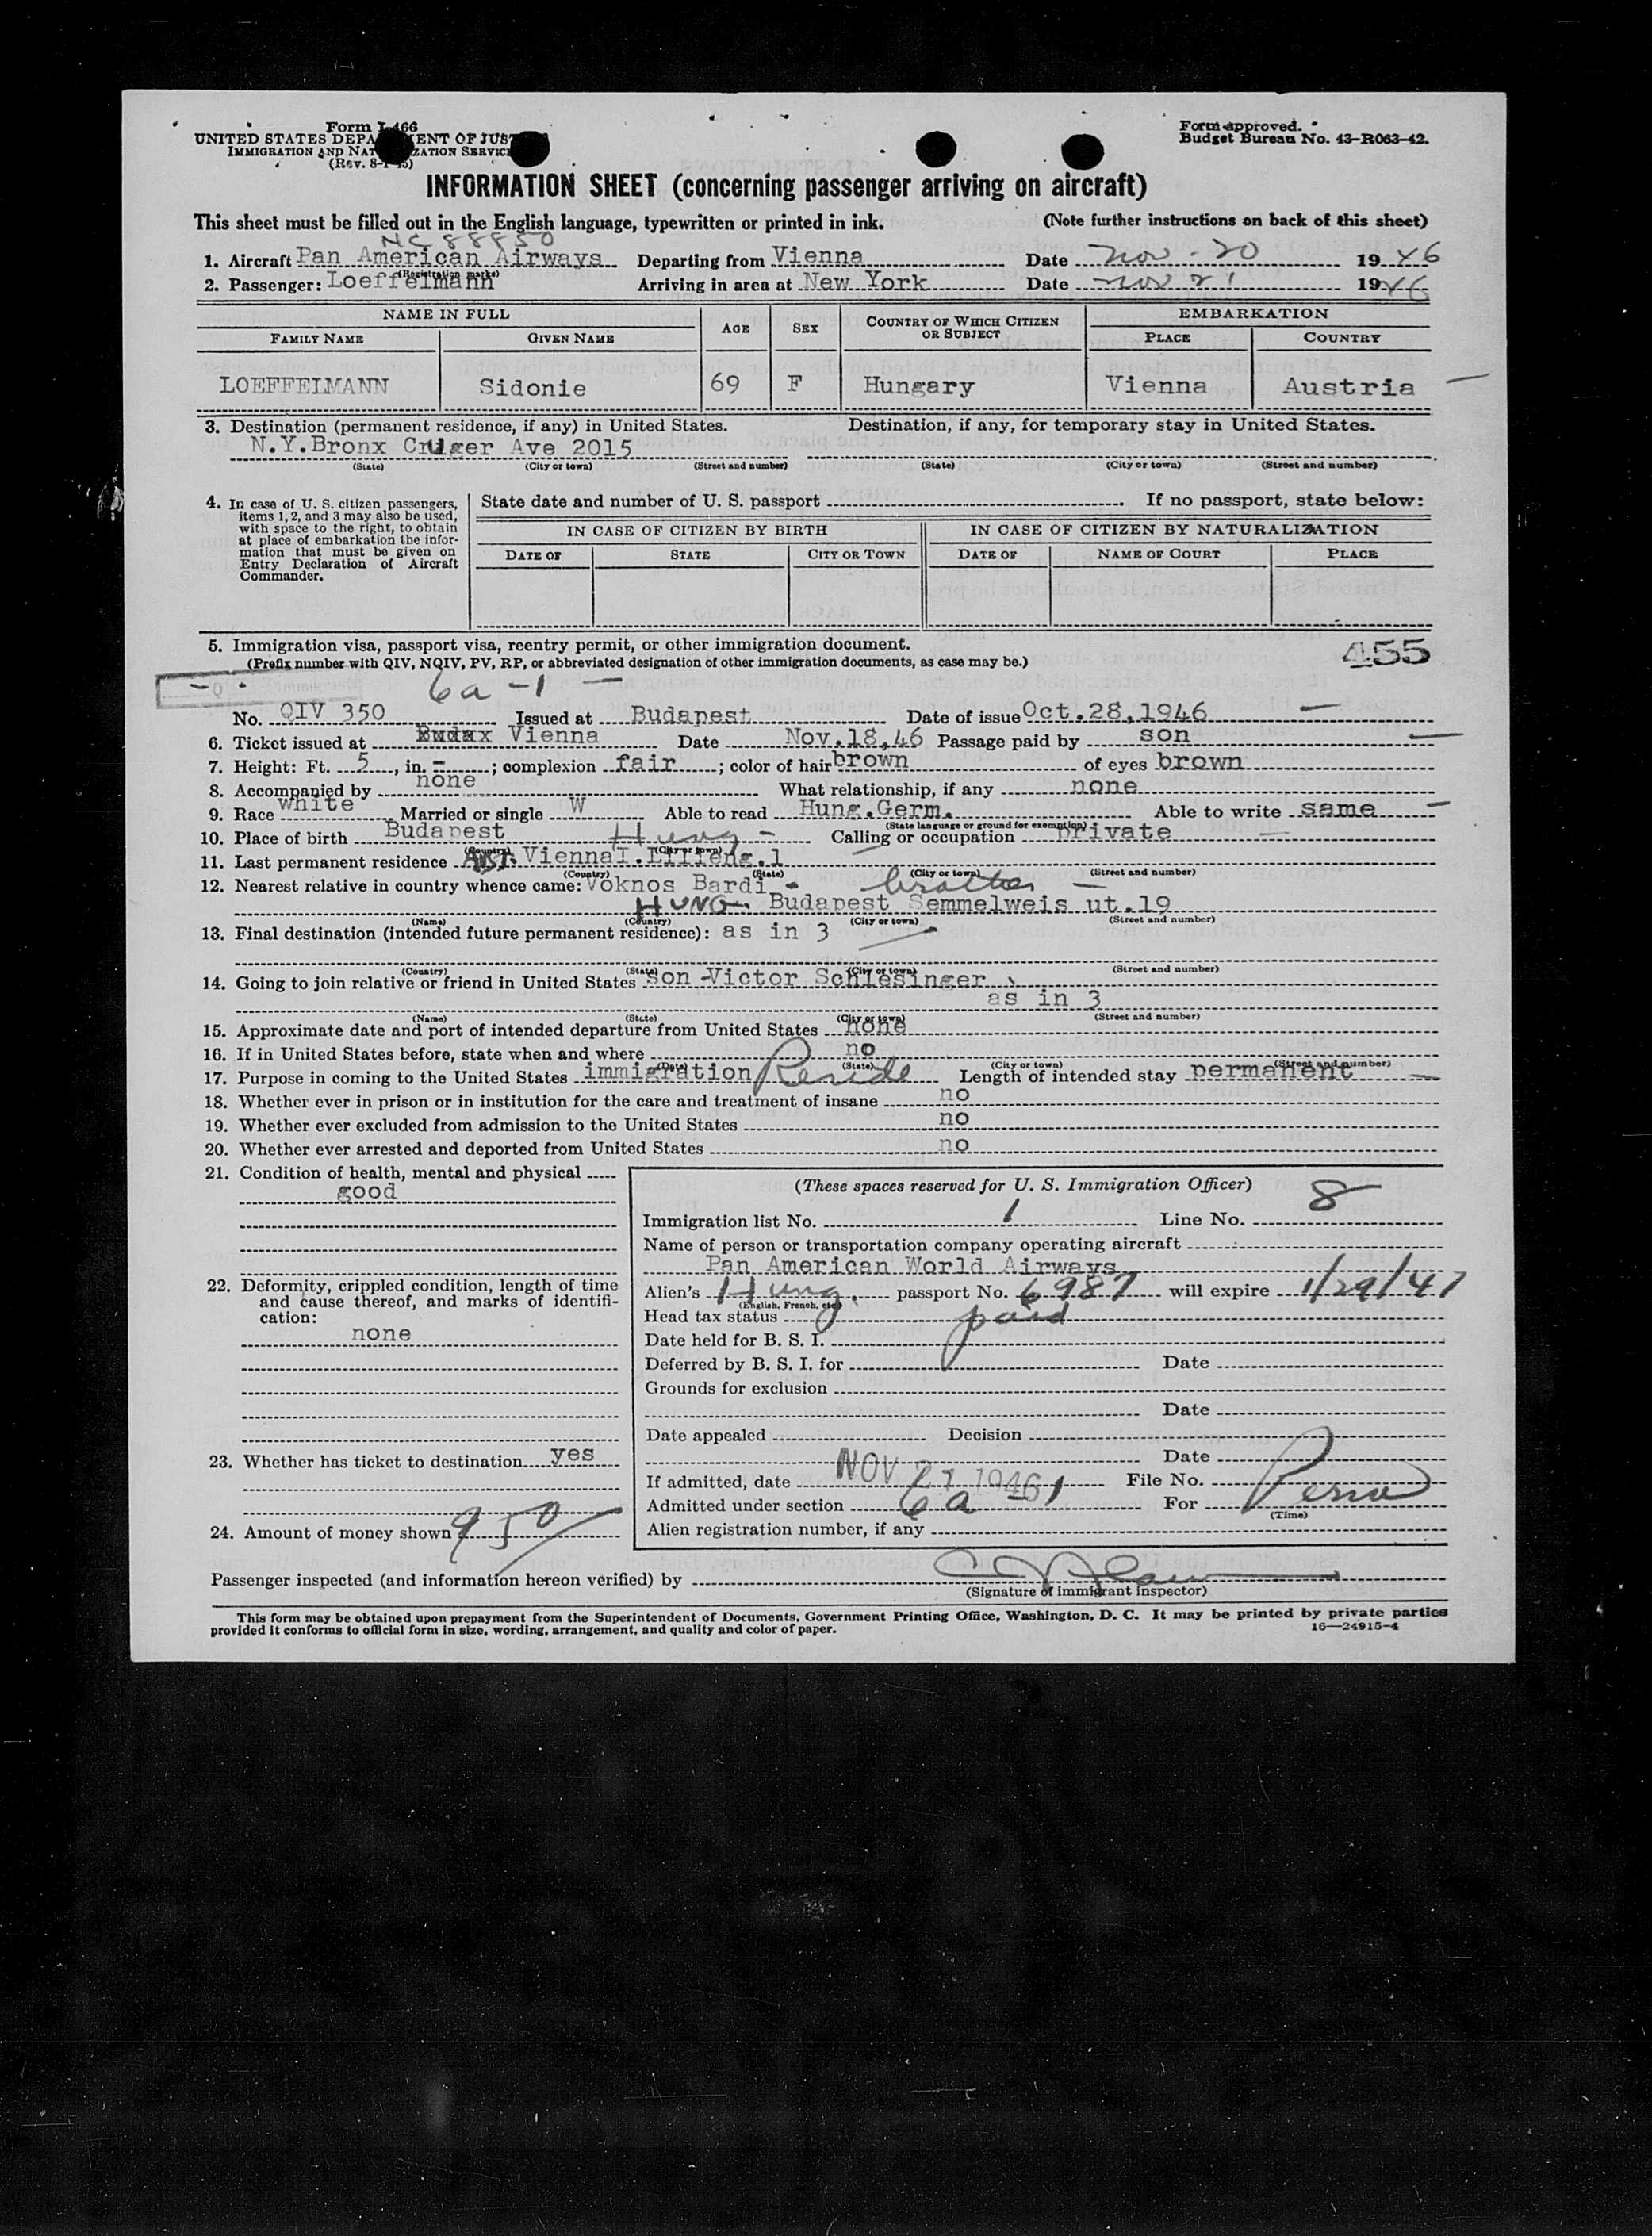 Form I-466
UNITED STATES DEPARTMENT OF JUSTICE
IMMIGRATION AND NATURALIZATION SERVICE
(Rev. 8-1-45)
Form approved.
Budget Bureau No. 43-R063-42.
INFORMATION SHEET (concerning passenger arriving on aircraft)
This sheet must be filled out in the English language, typewritten or printed in ink. (Note further instructions on back of this sheet)
NC 88850
1. Aircraft Pan American Airways Departing from Vienna Date Nov. 20 1946
(Registration marks)
2. Passenger: Loeffelmann Arriving in area at New York Date Nov 21 1946
NAME IN FULL AGE SEX COUNTRY OF WHICH CITIZEN OR SUBJECT EMBARKATION
FAMILY NAME GIVEN NAME PLACE COUNTRY
LOEFFELMANN Sidonie 69 F Hungary Vienna Austria
3. Destination (permanent residence, if any) in United States. Destination, if any, for temporary stay in United States.
N.Y.Bronx Cruger Ave 2015
(State) (City or town) (Street and number) (State) (City or town) (Street and number)
4. In case of U. S. citizen passengers, items 1, 2, and 3 may also be used, with space to the right, to obtain at place of embarkation the information that must be given on Entry Declaration of Aircraft Commander.
State date and number of U. S. passport If no passport, state below:
IN CASE OF CITIZEN BY BIRTH IN CASE OF CITIZEN BY NATURALIZATION
DATE OF STATE CITY OR TOWN DATE OF NAME OF COURT PLACE
5. Immigration visa, passport visa, reentry permit, or other immigration document.
(Prefix number with QIV, NQIV, PV, RP, or abbreviated designation of other immigration documents, as case may be.)
455
6a-1
No. QIV 350 Issued at Budapest Date of issue Oct.28,1946
6. Ticket issued at Vienna Date Nov.18,46 Passage paid by son
7. Height: Ft. 5, in. -; complexion fair; color of hair brown of eyes brown
8. Accompanied by none What relationship, if any none
9. Race white Married or single W Able to read Hung.Germ. Able to write same
(State language or ground for exemption)
10. Place of birth Budapest Hung - Calling or occupation private
(Country) (City or town)
11. Last permanent residence AUST. Vienna I. Lilieng.1
(Country) (State) (City or town) (Street and number)
12. Nearest relative in country whence came: Voknos Bardi - brother
HUNG. Budapest Semmelweis ut.19
(Name) (Country) (City or town) (Street and number)
13. Final destination (intended future permanent residence): as in 3
(Country) (State) (City or town) (Street and number)
14. Going to join relative or friend in United States son -Victor Schlesinger
as in 3
(Name) (State) (City or town) (Street and number)
15. Approximate date and port of intended departure from United States none
16. If in United States before, state when and where no
(Date) (State) (City or town) (Street and number)
17. Purpose in coming to the United States immigration Reside Length of intended stay permanent
18. Whether ever in prison or in institution for the care and treatment of insane no
19. Whether ever excluded from admission to the United States no
20. Whether ever arrested and deported from United States no
21. Condition of health, mental and physical
good
22. Deformity, crippled condition, length of time and cause thereof, and marks of identification:
none
23. Whether has ticket to destination yes
24. Amount of money shown 950
(These spaces reserved for U. S. Immigration Officer)
Immigration list No. 1 Line No. 8
Name of person or transportation company operating aircraft
Pan American World Airways
Alien's Hung. passport No. 6987 will expire 1/29/47
(English, French, etc.)
Head tax status paid
Date held for B. S. I.
Deferred by B. S. I. for Date
Grounds for exclusion
Date
Date appealed Decision
Date
If admitted, date NOV 21 1946 File No.
Admitted under section 6a-1 For Perm
(Time)
Alien registration number, if any
Passenger inspected (and information hereon verified) by
(Signature of immigrant inspector)
This form may be obtained upon prepayment from the Superintendent of Documents, Government Printing Office, Washington, D. C. It may be printed by private parties
provided it conforms to official form in size, wording, arrangement, and quality and color of paper. 16—24915-4